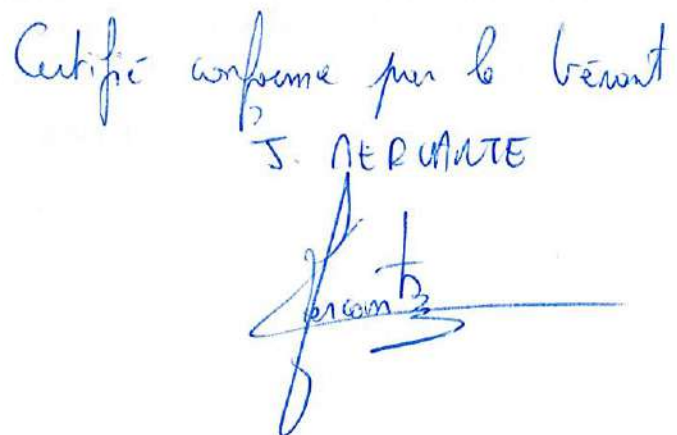 Certifié conforme par le Gérant
J. MERCANTE